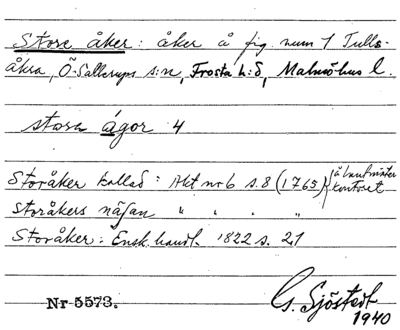 Store åker: åker å fig. num 1 Tulls-
åkra, Ö-Sallerups s:n, Frosta h:d, Malmöhus l.
stora ågor 4
Storåker kallad: Akt nr 6 s. 8 (1765) (å lantmäteri
kontoret
Storåkers näsan " " . "
Storåker: Ensk. handl. 1822 s. 21
Nr 5573.
G. Sjöstedt
1940